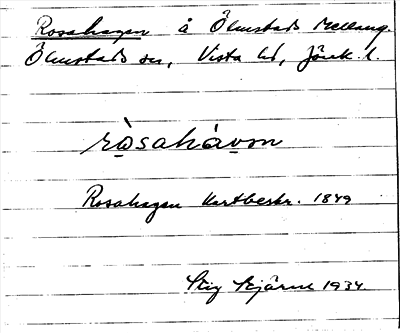 Rosahagen å Ölmstads Mellang.
Ölmstads sn, Vista hd, Jönk. l.
ròsahàvon
Rosahagen Kartbeskr. 1849
Stig Bjärne 1934.